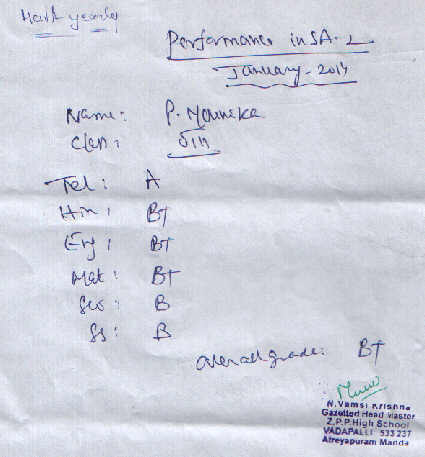 Half yearly
Performance in SA-I
January-2014
Name: P. Mounika
Class: VIII
Tel: A
Hin: B+
Eng: B+
Mat: B+
Sci: B
SS: B
Overall grade: B+
N.Vamsi Krishna
Gazetted Head Master
Z.P.P High School
VADAPALLI 533 237
Atreyapuram Manda